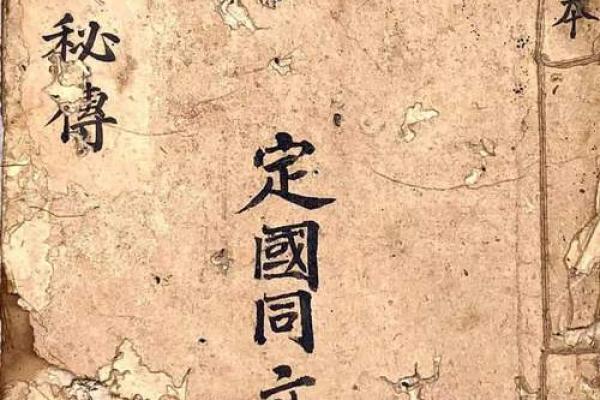 本
定國同
秘傳